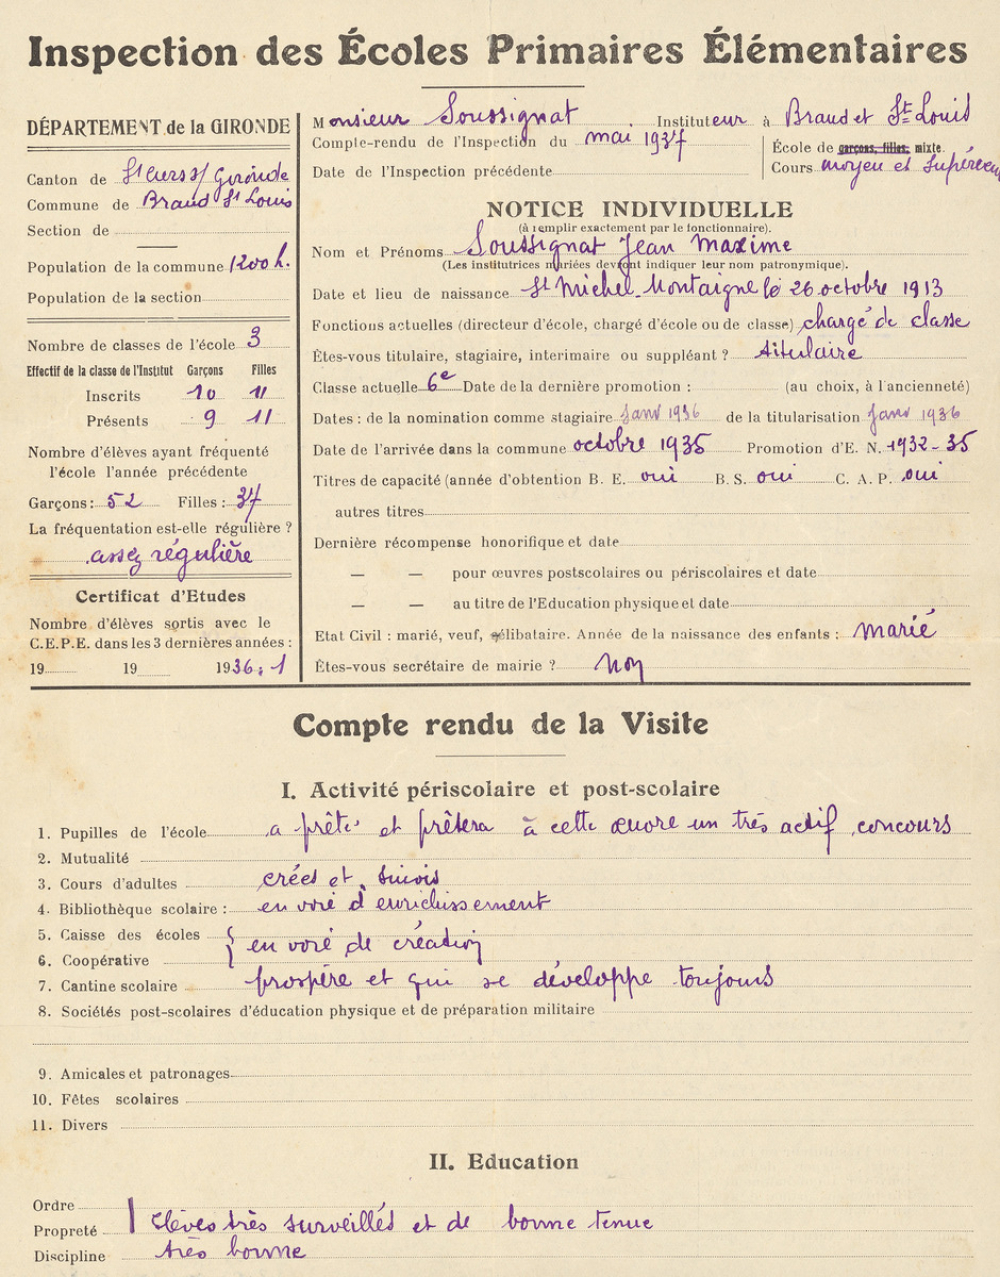 Inspection des Écoles Primaires Élémentaires
DÉPARTEMENT de la GIRONDE
Canton de St Ciers s/ Gironde
Commune de Braud St Louis
Section de
Population de la commune 1200 h.
Population de la section
Nombre de classes de l'école 3
Effectif de la classe de l'Institut Garçons Filles
Inscrits 10 11
Présents 9 11
Nombre d'élèves ayant fréquenté
l'école l'année précédente
Garçons : 52 Filles : 37
La fréquentation est-elle régulière ?
assez régulière
Certificat d'Etudes
Nombre d'élèves sortis avec le
C.E.P.E. dans les 3 dernières années :
19 19 1936 : 1
Monsieur Soussignat Instituteur à Braud et St Louis
Compte-rendu de l'Inspection du mai 1937
École de garçons, filles, mixte.
Date de l'Inspection précédente
Cours moyen et supérieur
NOTICE INDIVIDUELLE
(à remplir exactement par le fonctionnaire).
Nom et Prénoms Soussignat Jean Maxime
(Les institutrices mariées devront indiquer leur nom patronymique).
Date et lieu de naissance St Michel-Montaigne le 26 octobre 1913
Fonctions actuelles (directeur d'école, chargé d'école ou de classe) chargé de classe
Êtes-vous titulaire, stagiaire, interimaire ou suppléant ? titulaire
Classe actuelle 6e Date de la dernière promotion : (au choix, à l'ancienneté)
Dates : de la nomination comme stagiaire Janv 1936 de la titularisation Janv 1936
Date de l'arrivée dans la commune octobre 1935 Promotion d'E. N. 1932-35
Titres de capacité (année d'obtention B. E. oui B. S. oui C. A. P. oui
autres titres
Dernière récompense honorifique et date
— — pour œuvres postscolaires ou périscolaires et date
— — au titre de l'Education physique et date
Etat Civil : marié, veuf, célibataire. Année de la naissance des enfants : marié
Êtes-vous secrétaire de mairie ? non
Compte rendu de la Visite
I. Activité périscolaire et post-scolaire
1. Pupilles de l'école a prêté et prêtera à cette œuvre un très actif concours
2. Mutualité
3. Cours d'adultes créés et suivis
4. Bibliothèque scolaire : en voie d'enrichissement
5. Caisse des écoles { en voie de création
6. Coopérative
7. Cantine scolaire prospère et qui se développe toujours
8. Sociétés post-scolaires d'éducation physique et de préparation militaire
9. Amicales et patronages
10. Fêtes scolaires
11. Divers
II. Education
Ordre
Propreté élèves très surveillés et de bonne tenue
Discipline très bonne